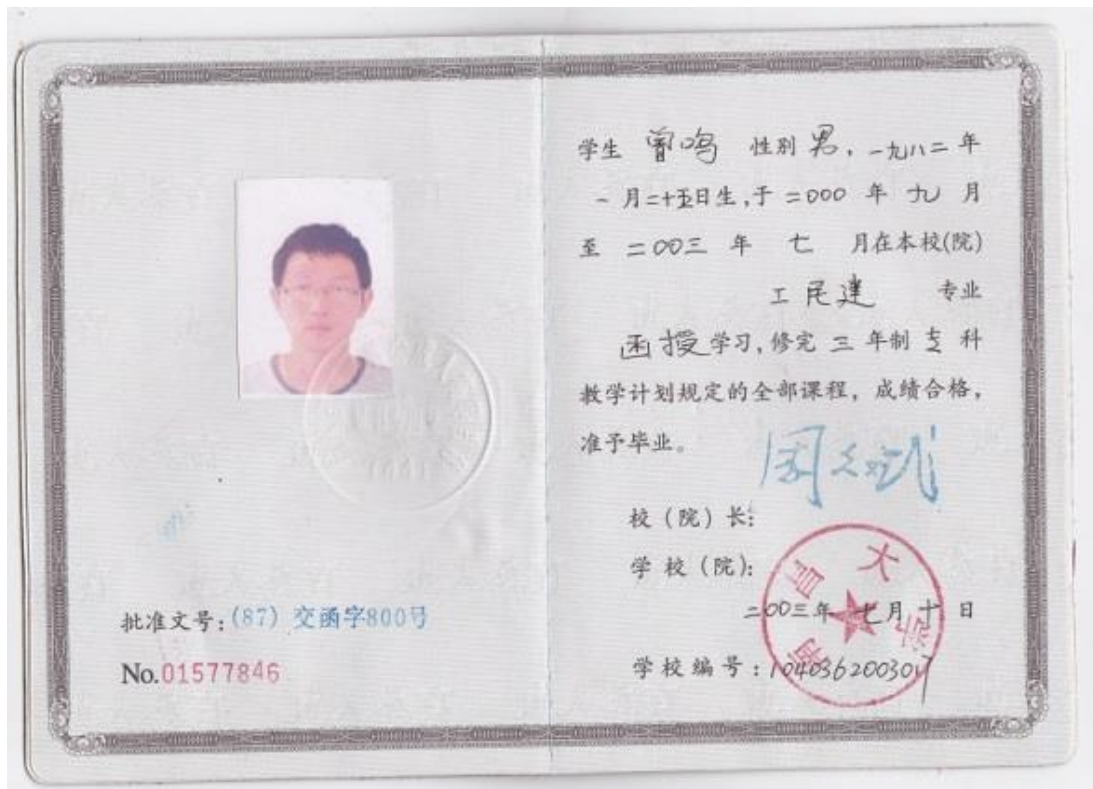 批准文号:(87)交函字800号
No.01577846
学生 曾鸣 性别 男,一九八二年
一月二十五日生,于二000年九月
至二00三年七月在本校(院)
工民建 专业
函授学习,修完三年制专科
教学计划规定的全部课程,成绩合格,
准予毕业。
校(院)长:
学校(院):
南昌大学
二00三年七月十日
学校编号: